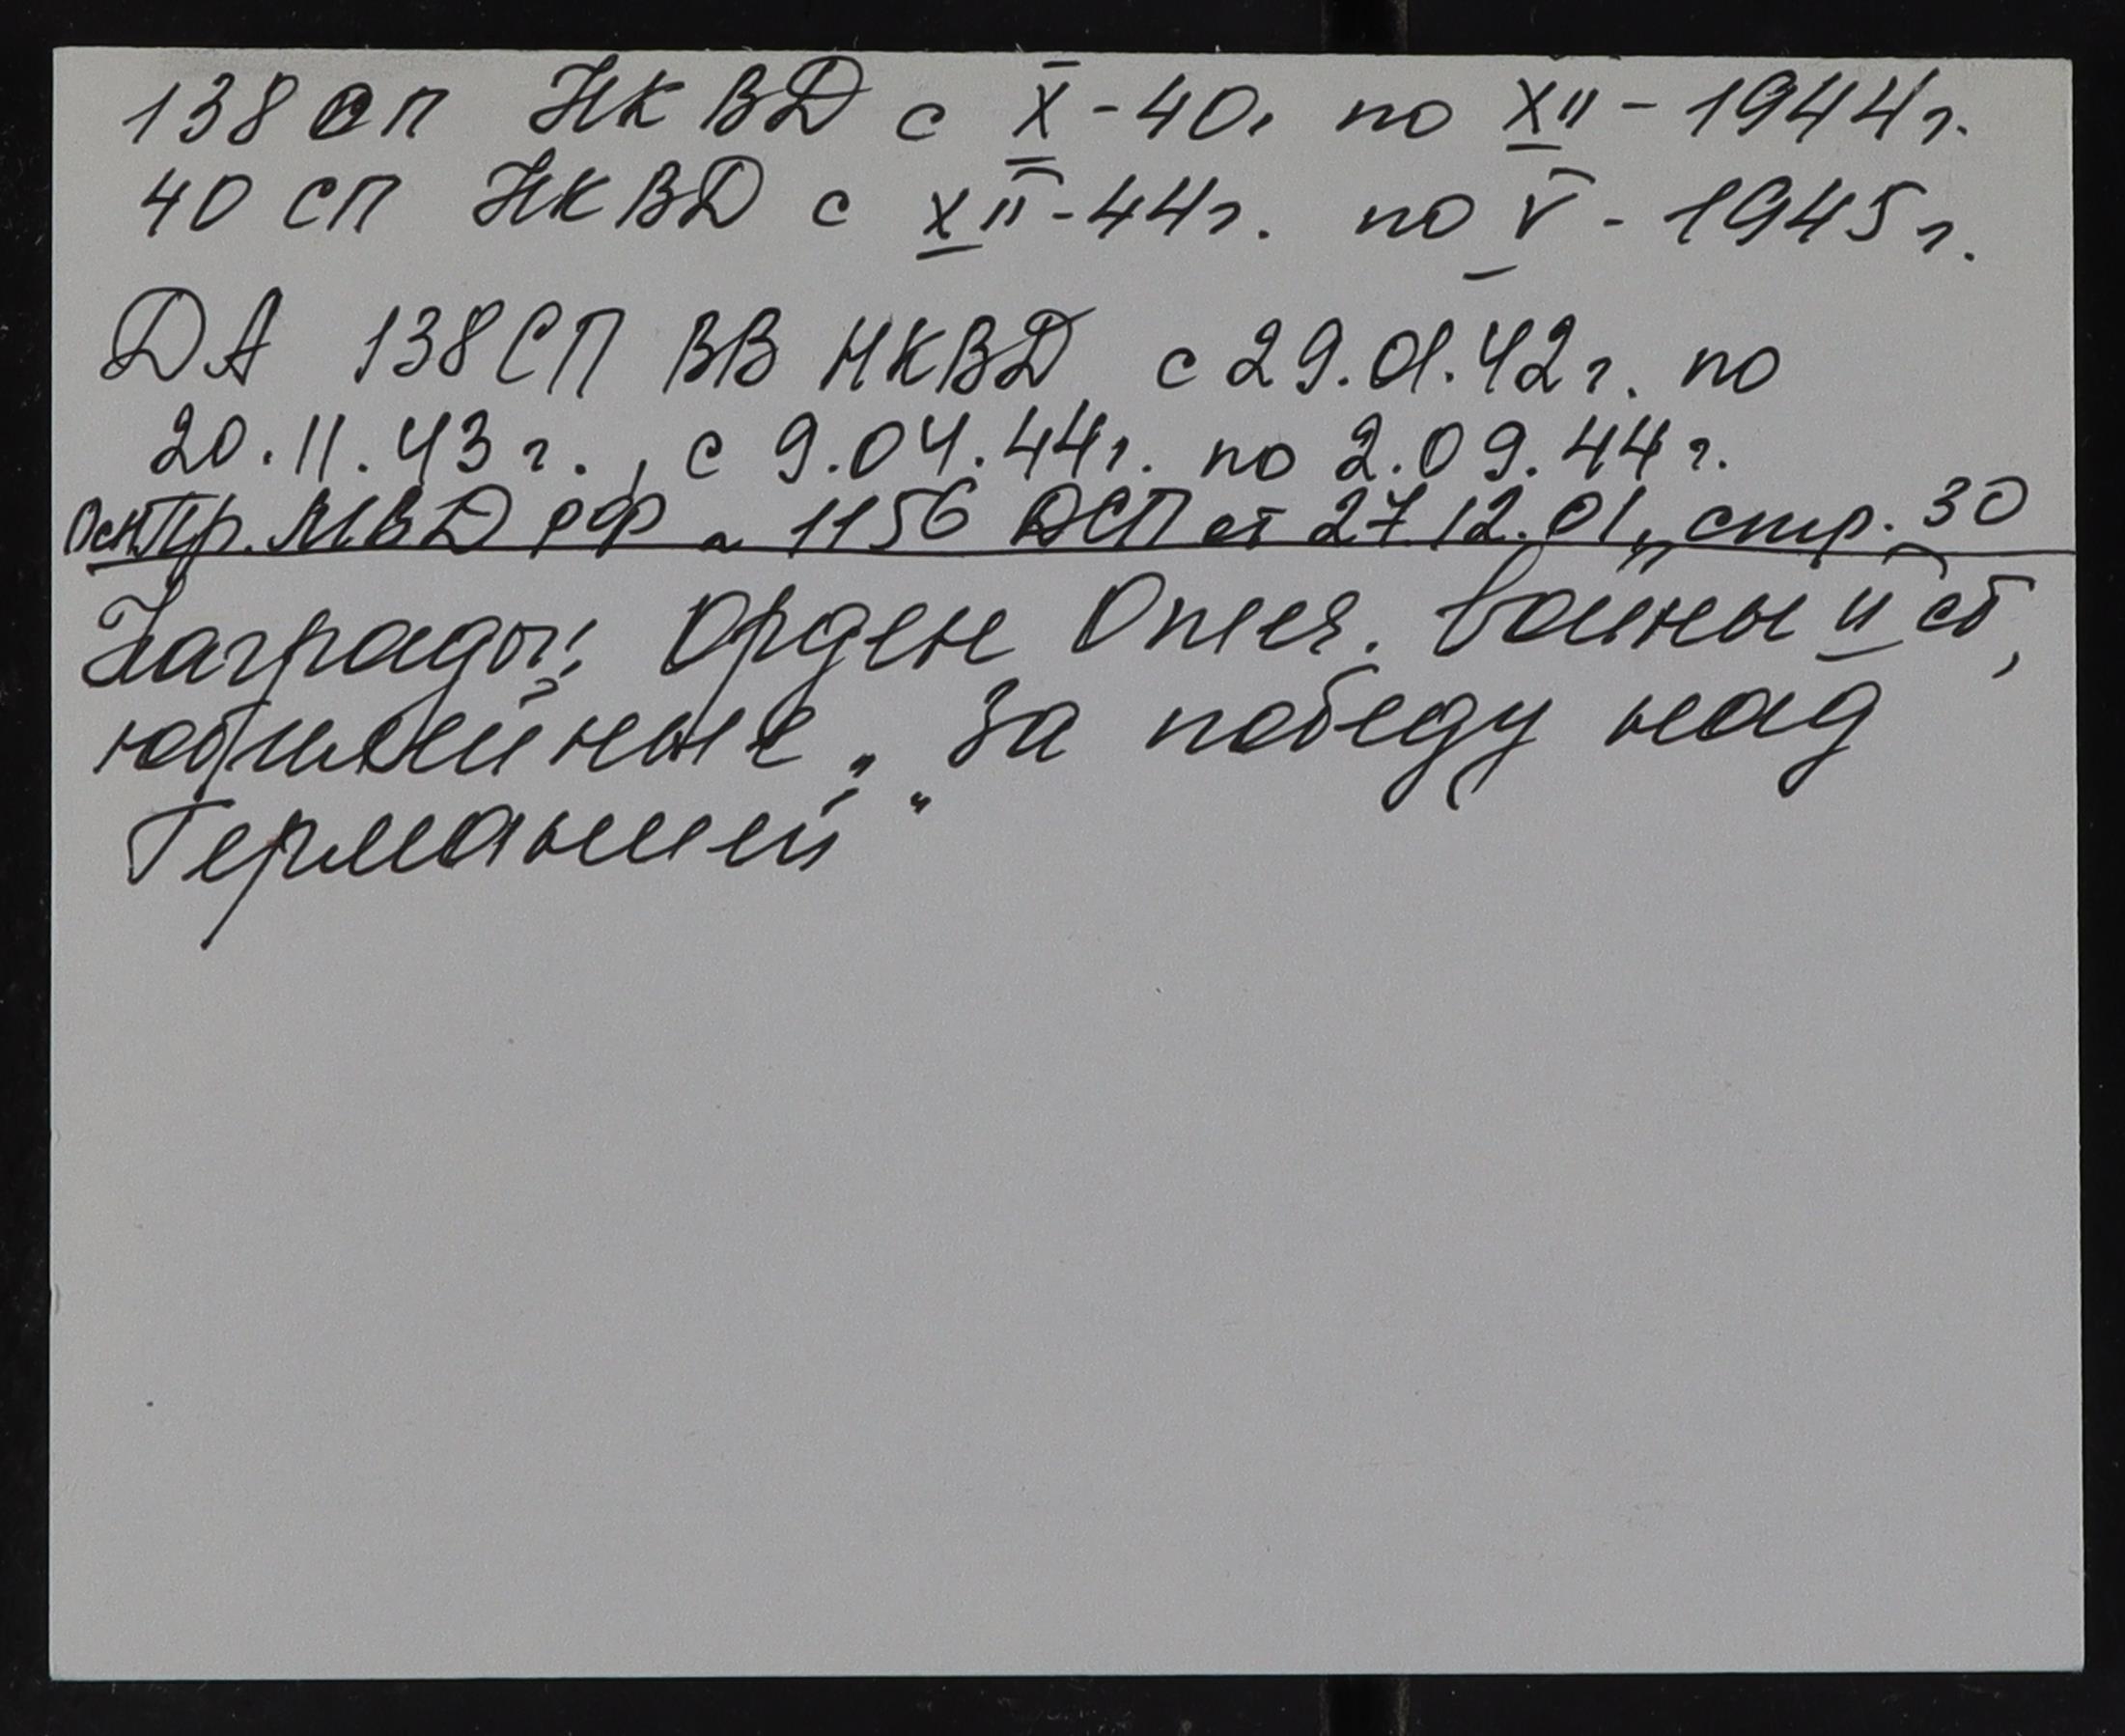 138 СП НКВД с X-40г по XII-1944г.
40 СП НКВД с XII-44г. по V-1945г.
ДА 138 СП ВВ НКВД с 29.01.42г. по
20.11.43г., с 9.04.44г. по 2.09.44г.
Осн Пр. МВД РФ 1156 ДСП от 27.12.01, стр. 30
Награды: Орден Отеч. войны II ст,
юбилейные, "За победу над
Германией"